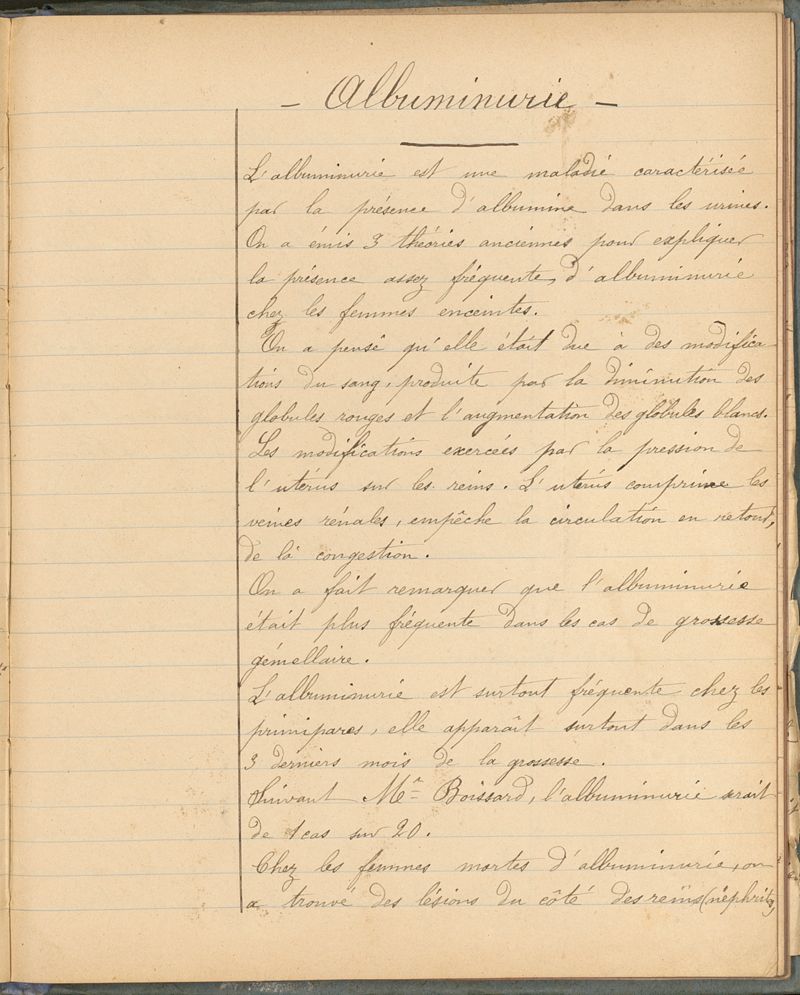 - Albuminurie -
L'albuminurie est une maladie caractérisée
par la présence d'albumine dans les urines.
On a émis 3 théories anciennes pour expliquer
la présence assez fréquente, d'albuminurie
chez les femmes enceintes.
On a pensé qu'elle était due a des modifica-
tions du sang, produite par la diminution des
globules rouges et l'augmentation des globules blancs.
Les modifications exercées par la pression de
l'utérus sur les reins. L'utérus comprime les
veines rénales, empêche la circulation en retour,
de là congestion.
On a fait remarquer que l'albuminurie
était plus fréquente dans les cas de grossesse
gémellaire.
L'albuminurie est surtout fréquente chez les
primipares, elle apparaît surtout dans les
3 derniers mois de la grossesse.
Suivant Mr Boissard, l'albuminurie serait
de 1 cas sur 20.
Chez les femmes mortes d'albuminurie, on
a trouvé des lésions du côté des reins (néphrite,